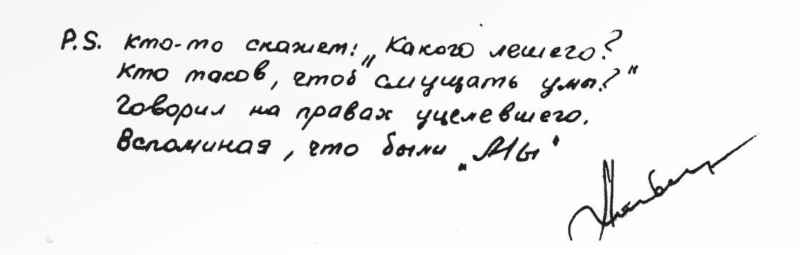 P.S. Кто-то скажет: „Какого лешего?
Кто таков, чтоб смущать умы?"
Говорил на правах уцелевшего.
Вспоминая, что были „Мы"